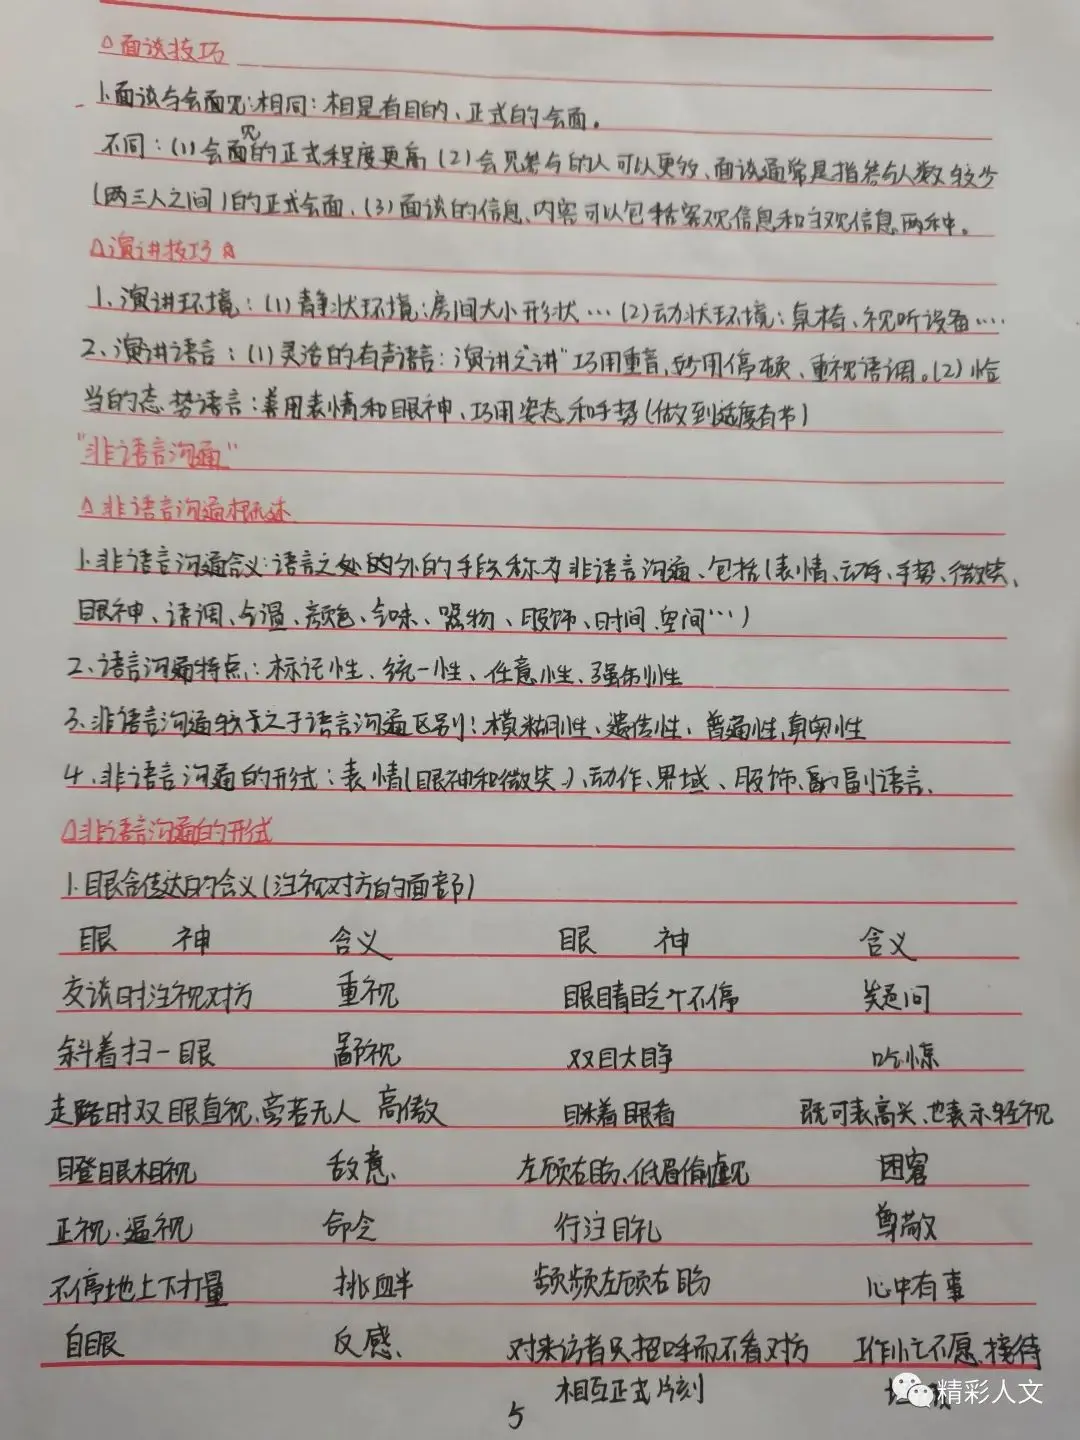 △面谈技巧
1.面谈与会面见:相同:相是有目的、正式的会面。
不同:(1)会面见的正式程度更高(2)会见参与的人可以更多、面谈通常是指参与人数较少
(两三人之间)的正式会面、(3)面谈的信息、内容可以包括客观信息和主观信息两种。
△演讲技巧☆
1.演讲环境:(1)静状环境:房间大小形状…(2)动状环境:桌椅、视听设备…
2、演讲语言:(1)灵活的有声语言:演讲之"讲"巧用重音,妙用停顿、重视语调。(2)恰
当的态势语言:善用表情和眼神、巧用姿态和手势(做到适度有节)
"非语言沟通"
△非语言沟通概述
1.非语言沟通含义:语言之处的外的手段称为非语言沟通、包括(表情、动作、手势、微笑、
眼神、语调、气温、颜色、气味、器物、服饰、时间、空间…)
2、语言沟通特点:标记性、统一性、任意性、强制性
3、非语言沟通较之于语言沟通区别:模糊性、遗传性、普遍性,真实性
4、非语言沟通的形式:表情(眼神和微笑)、动作、界域、服饰、副语言、
△非语言沟通的形式
1.眼含传达的含义(注视对方的面部)
眼 神 含义 眼 神 含义
交谈时注视对方 重视 眼睛眨个不停 疑问
斜着扫一眼 鄙视 双目大睁 吃惊
走路时双眼直视、旁若无人 高傲 眯着眼看 既可表高兴、也表示轻视
瞪眼相视 敌意、 左顾右盼、低眉偷觑 困窘
正视、逼视 命令 行注目礼 尊敬
不停地上下打量 挑衅 频频左顾右盼 心中有事
白眼 反感、 对来访者只招呼而不看对方 工作忙不愿接待
相互正式片刻
5
精彩人文